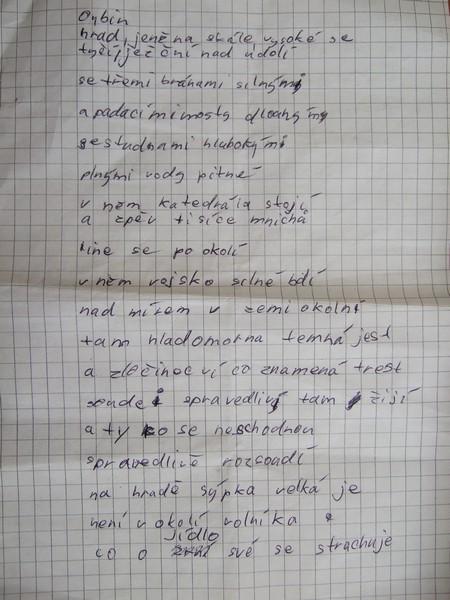 Oybin
hrad, jenž na skále vysoké se
tyčí, ječí ční nad údolí
se třemi bránami silnými
a padacími mosty dlouhými
se studnami hlubokými
plnými vody pitné
v něm katedrála stojí
a zpěv tisíce mnichů
line se po okolí
v něm vojsko silné bdí
nad mírem v zemi okolní
tam hladomorna temná jest
a zločinec ví co znamená trest
soudci spravedliví tam žijí
a ty co se neschodnou
spravedlivě rozsoudí
na hradě sýpka velká je
není v okolí rolníka
jídlo
co o své se strachuje